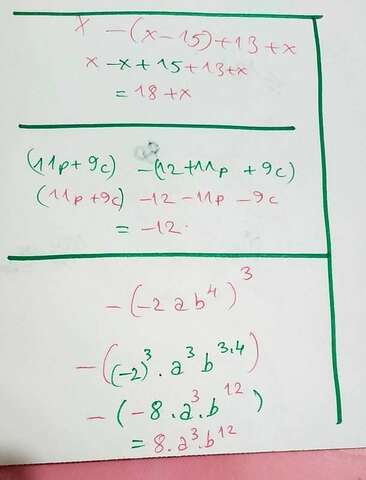 x - (x - 15) + 13 + x
x - x + 15 + 13 + x
= 18 + x
(11p + 9c) - (12 + 11p + 9c)
(11p + 9c) - 12 - 11p - 9c
= -12.
- (-2 a b⁴)³
- ((-2)³ . a³ b³·⁴)
- (-8 . a³ . b¹²)
= 8 . a³ . b¹²